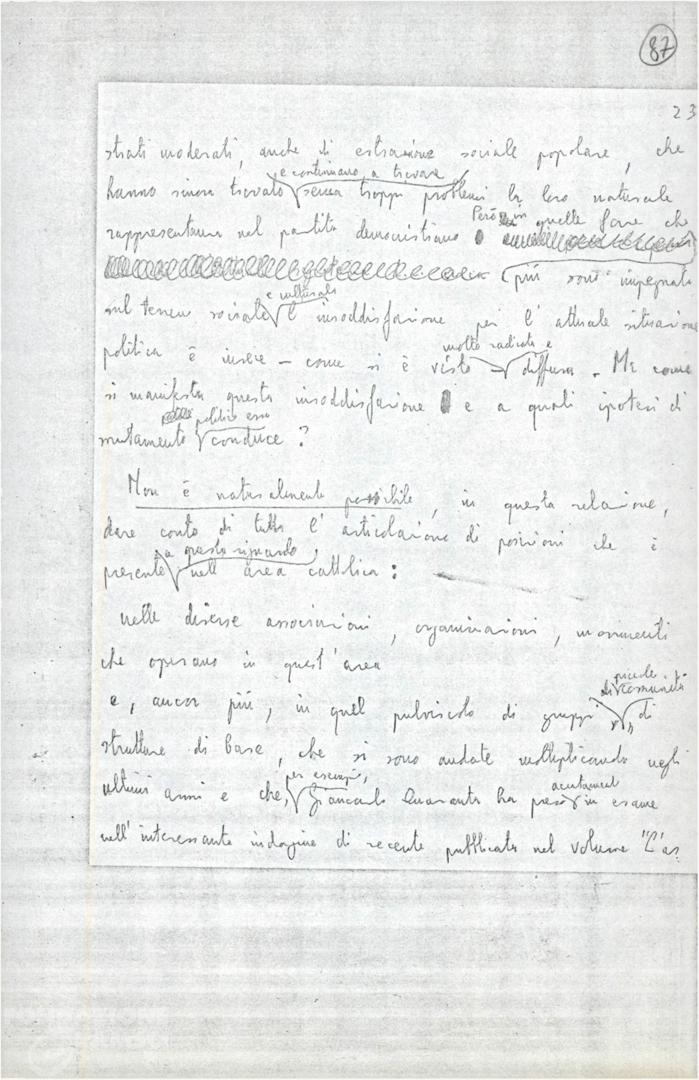 87
23
strati moderati, anche di estrazione sociale popolare, che
e continuano a trovare
hanno sinora trovato senza troppi problemi la loro naturale
rappresentanza nel partito democristiano Però in quelle fasce che
più sono impegnate
e culturale
sul terreno sociale l'insoddisfazione per l'attuale situazione
molto radicata e
politica è invece – come si è visto – diffusa. Ma come
si manifesta questa insoddisfazione e a quali ipotesi di
politico essa
mutamento conduce?
Non è naturalmente possibile, in questa relazione,
dare conto di tutta l'articolazione di posizioni che è
a questo riguardo,
presente nell'area cattolica:
nelle diverse associazioni, organizzazioni, movimenti
che operano in quest'area
piccole
di comunità
e, ancor più, in quel pulviscolo di gruppi, di
strutture di base, che si sono andate moltiplicando negli
per esempio, acutamente
ultimi anni e che, Giancarlo Quaranta ha preso in esame
nell'interessante indagine di recente pubblicata nel volume "L'as